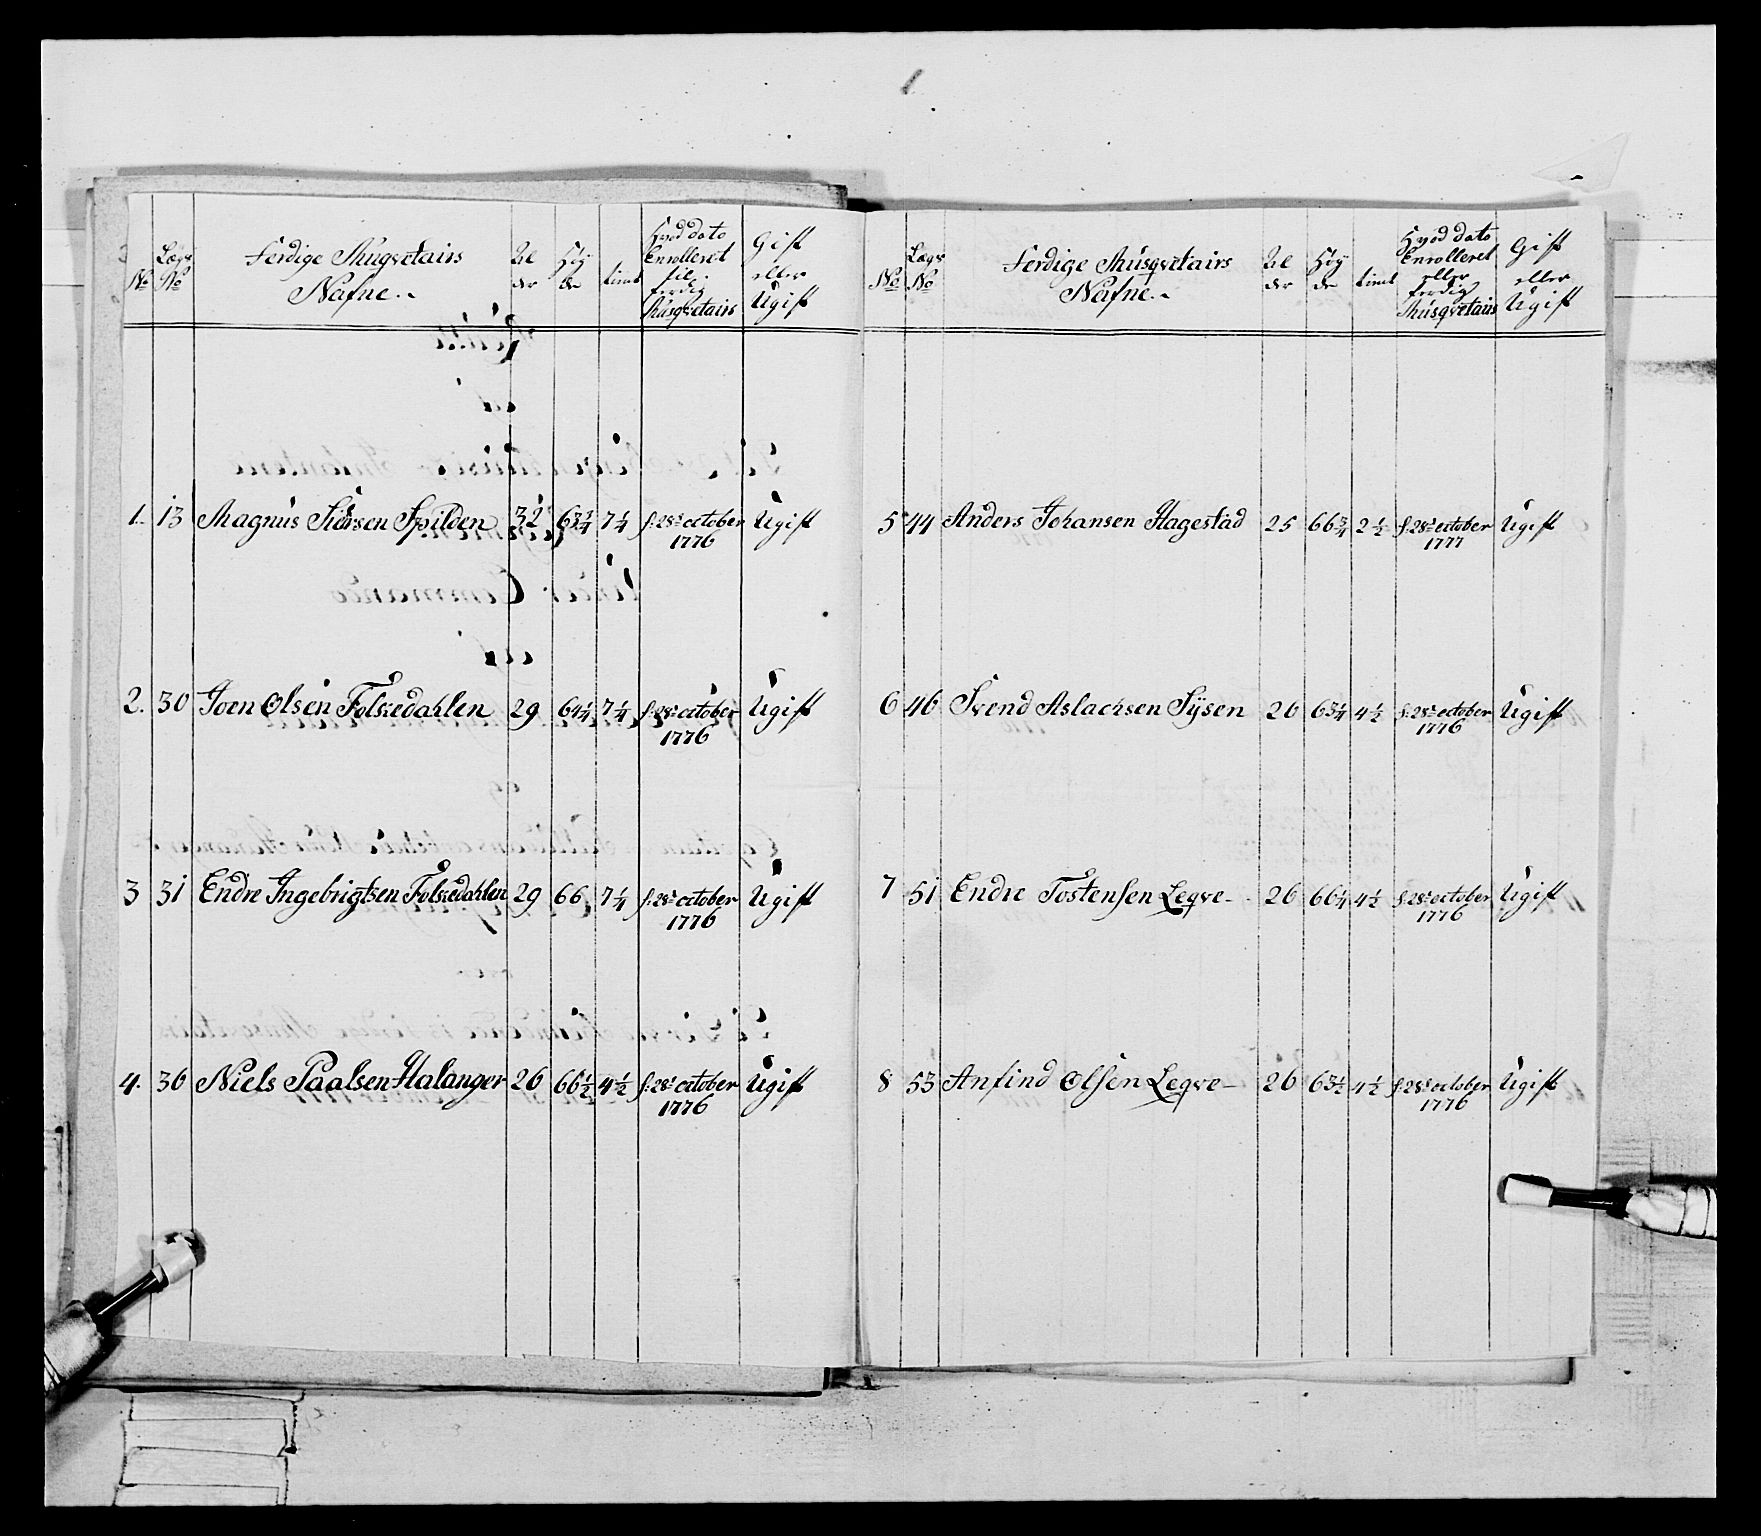 No Lægs No Ferdige Musqvetairs Nafne. Al der Høy de timt Hvad dato Enrolleret til ferdig Musqvetairs Gift eller Ugift
1. 13 Magnus Siursen Spilden 32 63 3/4 7 1/4 d: 28de october 1776 Ugift
2. 30 Joen Olsen Folkedahlen 29 64 1/4 7 1/4 d: 28de october 1776 Ugift
3 31 Endre Ingebrigtsen Folkedahlen 29 66 7 1/4 d: 28de october 1776 Ugift
4. 36 Niels Paalsen Halanger 26 66 1/2 4 1/2 d: 28de october 1776 Ugift
No Lægs No Ferdige Musqvetairs Nafne. Al der Høy de timt Hvad dato Enrolleret eller ferdig Musqvetairs Gift eller Ugift
5 44 Anders Johansen Hagestad 25 66 3/4 2 1/2 d: 28de october 1777 Ugift
6 46 Svend Aslachsen Sysen 26 63 1/4 4 1/2 d: 28de october 1776 Ugift
7 51 Endre Tostensen Legve 26 66 1/4 4 1/2 d: 28de october 1776 Ugift
8 53 Anfind Olsen Legve 26 63 1/2 4 1/2 d: 28de october 1776 Ugift